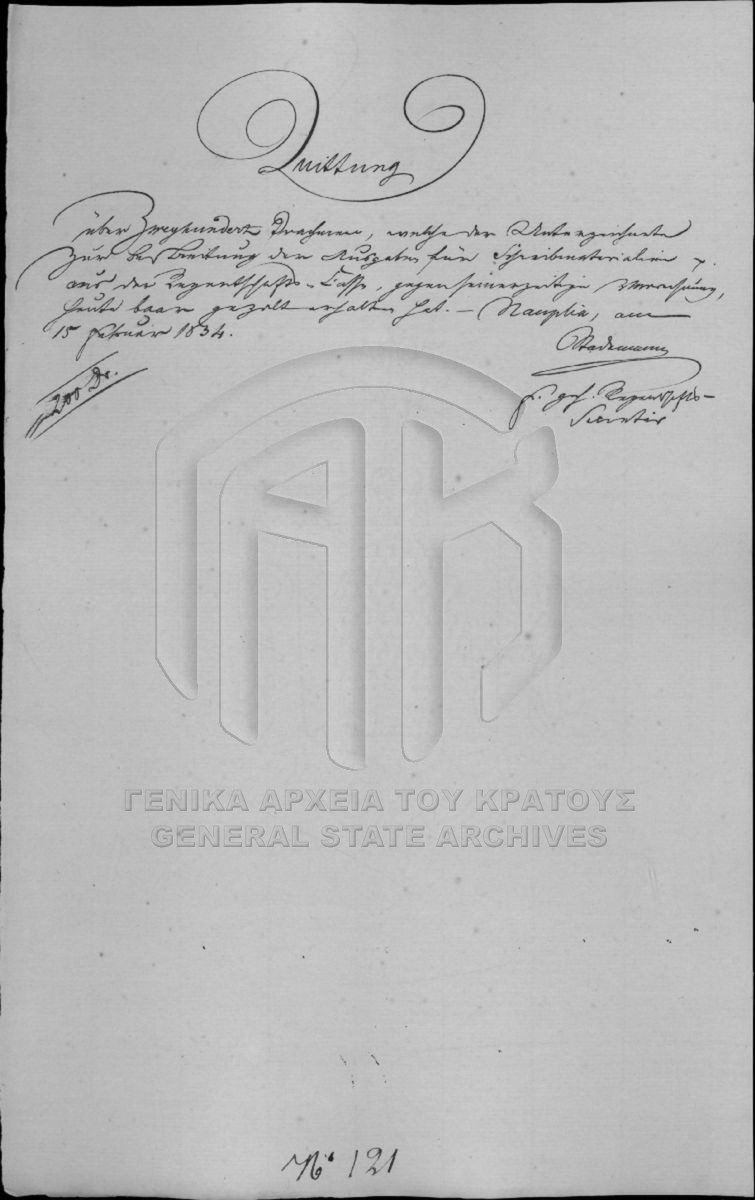 Quittung
über Zweyhundert Drachmen, welche der Unterzeichnete
zur Bestreitung der Ausgaben für Schreibmaterialien
aus der Regentschafts-Cassa, gegen seinerzeitige Verrechnung,
heute baar gezalt erhalten hat. – Nauplia, am
15 Februar 1834.
Stademann
200 Dr.
g. geh. Regentschafts-
Secretär
ΓΕΝΙΚΑ ΑΡΧΕΙΑ ΤΟΥ ΚΡΑΤΟΥΣ
GENERAL STATE ARCHIVES
No 121